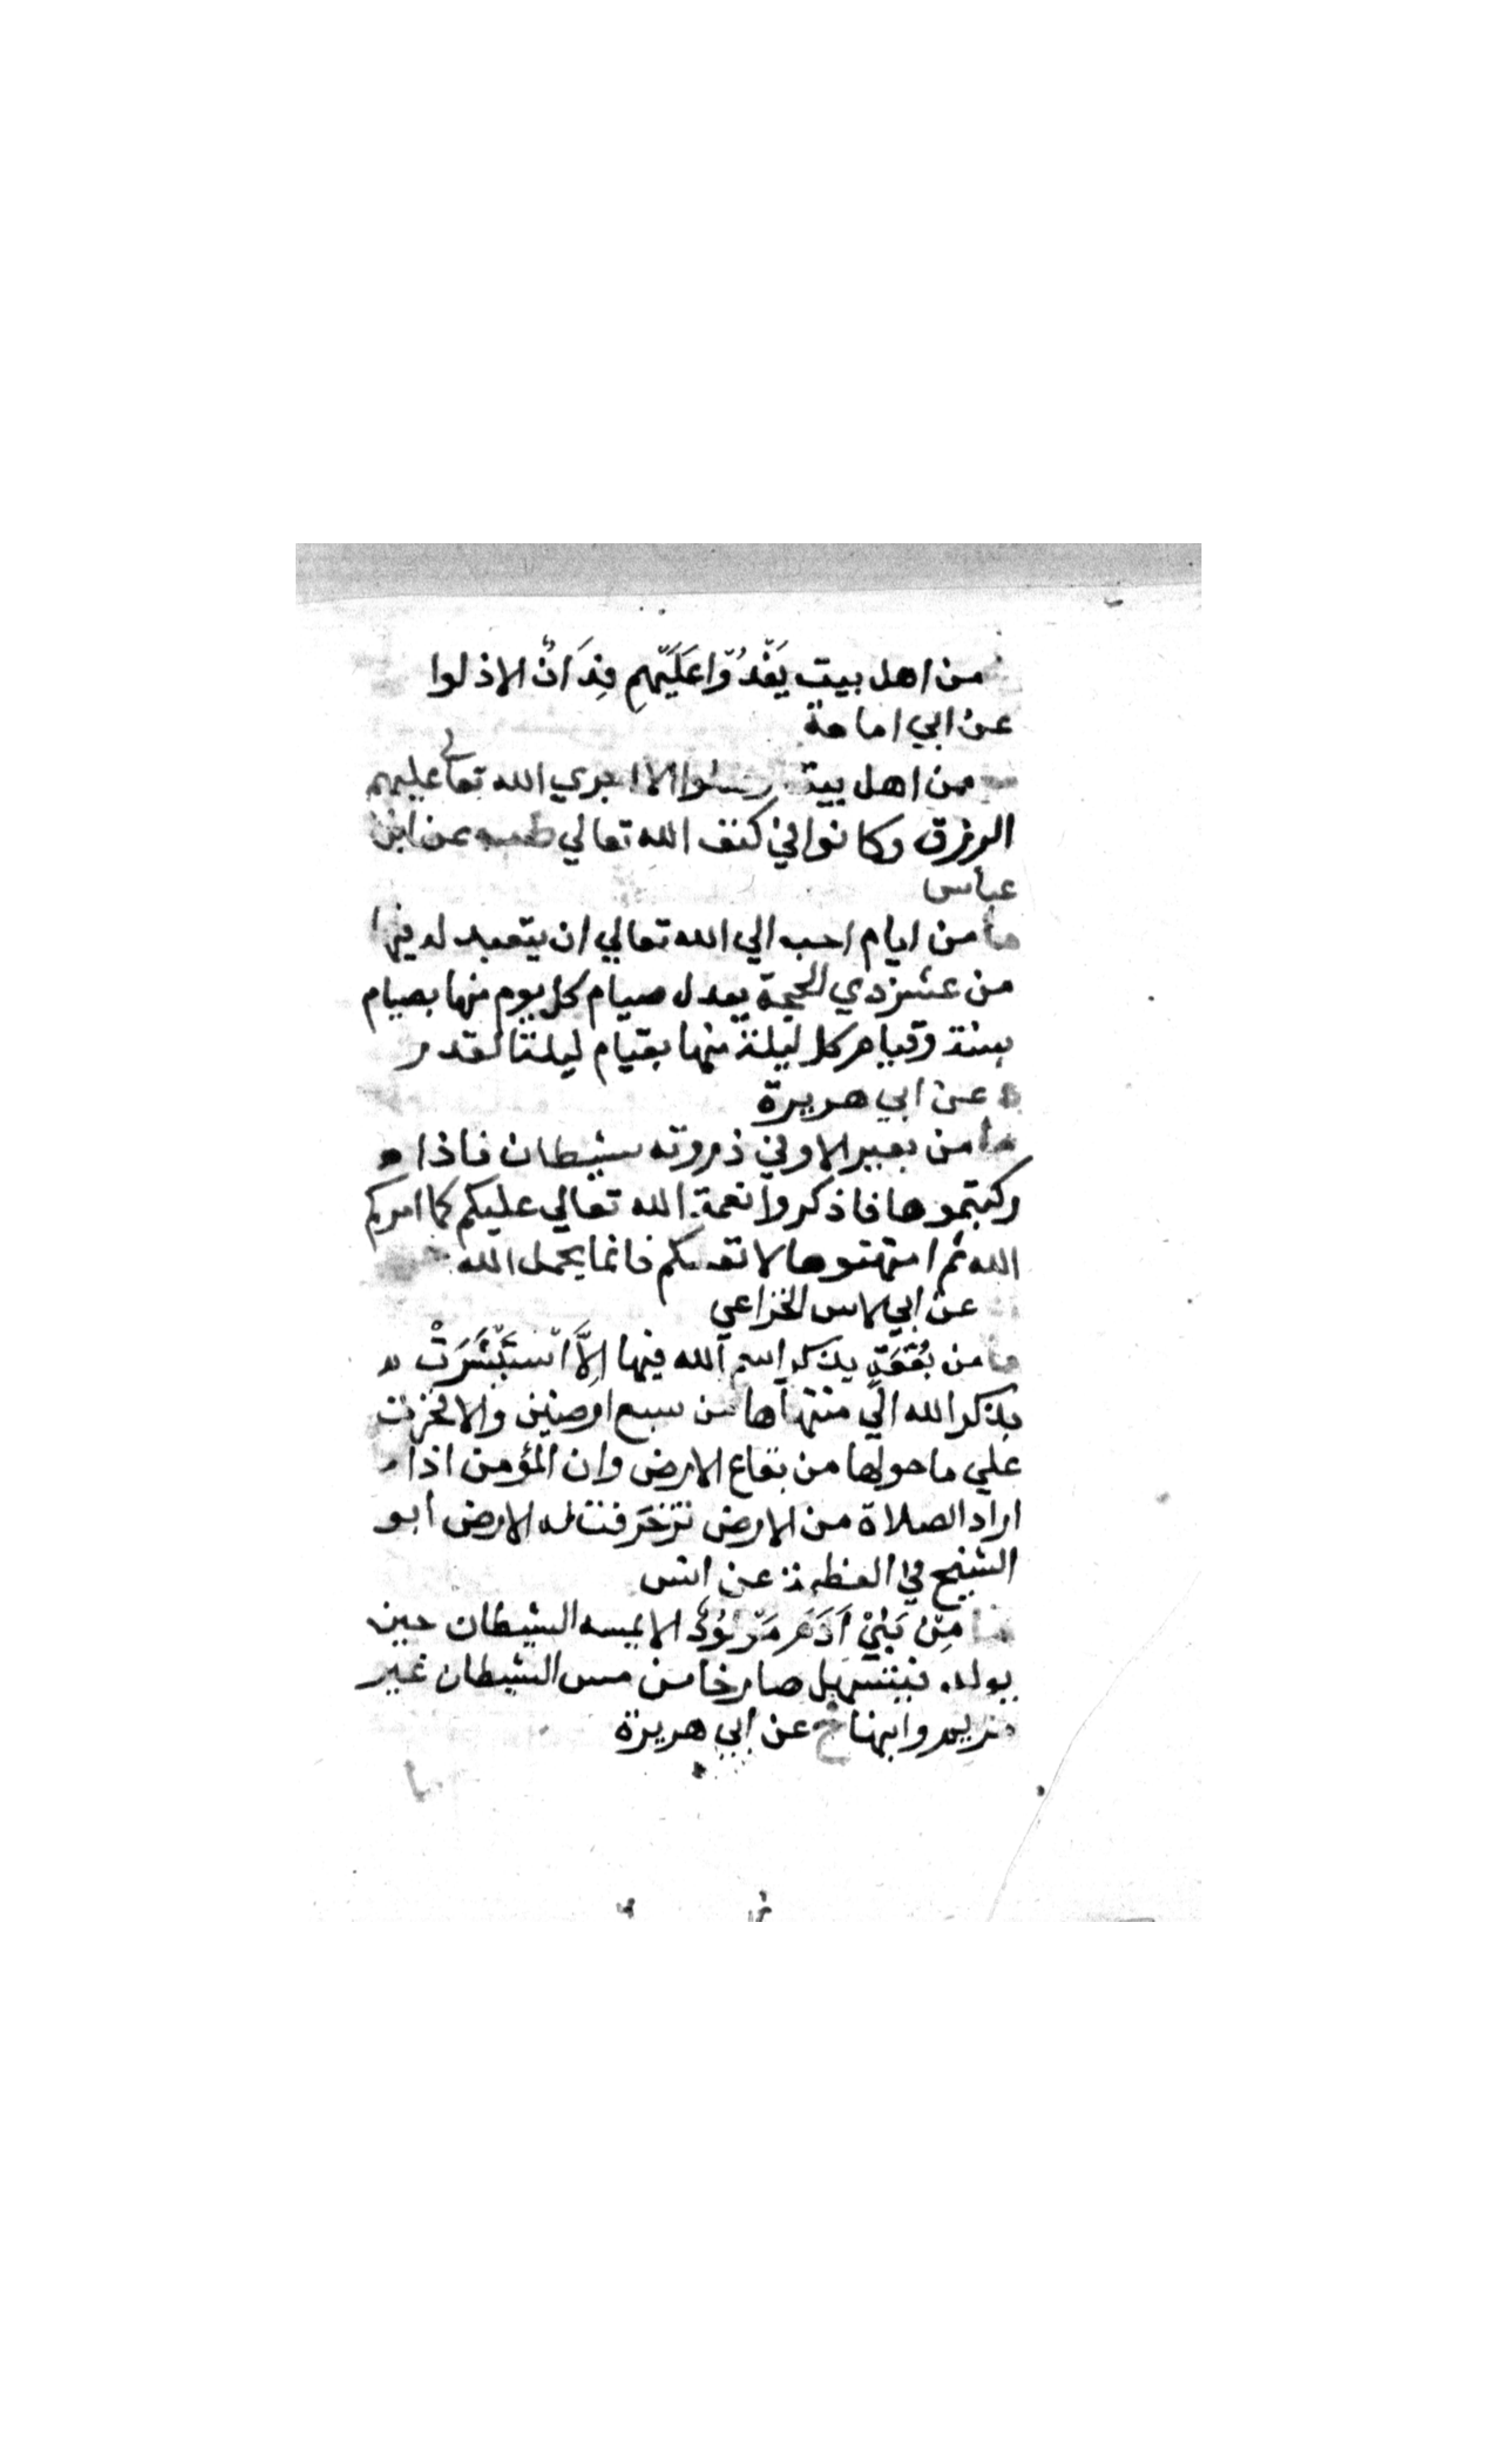 من اهل بيت يَغْدُوّا عَلَيْهِم فِدَانٌ الا ذلوا
عن ابي امامة
من اهل بيت واصلوا الا اجري الله تعالي عليهم
الرزق وكانوا في كنف الله تعالي طب عن ابن
عباس
ما من ايام احب الي الله تعالي ان يتعبد له فيها
من عشر ذي الحجة يعدل صيام كل يوم منها بصيام
سنة وقيام كل ليلة منها بقيام ليلة القدر
عن ابي هريرة
ما من بعير الا وفي ذروته شيطان فاذا
ركبتموها فاذكروا نعمة الله تعالي عليكم كما امركم
الله ثم امتهنوها لانفسكم فانما يحمل الله
عن ابي لاس الخزاعي
ما من بُقْعَةٍ يذكر اسم الله فيها اِلَّا اسْتَبْشَرَتْ
بذكر الله الي منتهاها من سبع ارضين والا فخرت
علي ما حولها من بقاع الارض وان المؤمن اذا
اراد الصلاة من الارض تزخرفت له الارض ابو
الشيخ في العظمة عن انس
ما مِنْ بَنِيْ اَدَمَ مَوْلُوْدٌ الا يمسه الشيطان حين
يولد فيستهل صارخا من مس الشيطان غير
مريم وابنها خ عن ابي هريرة